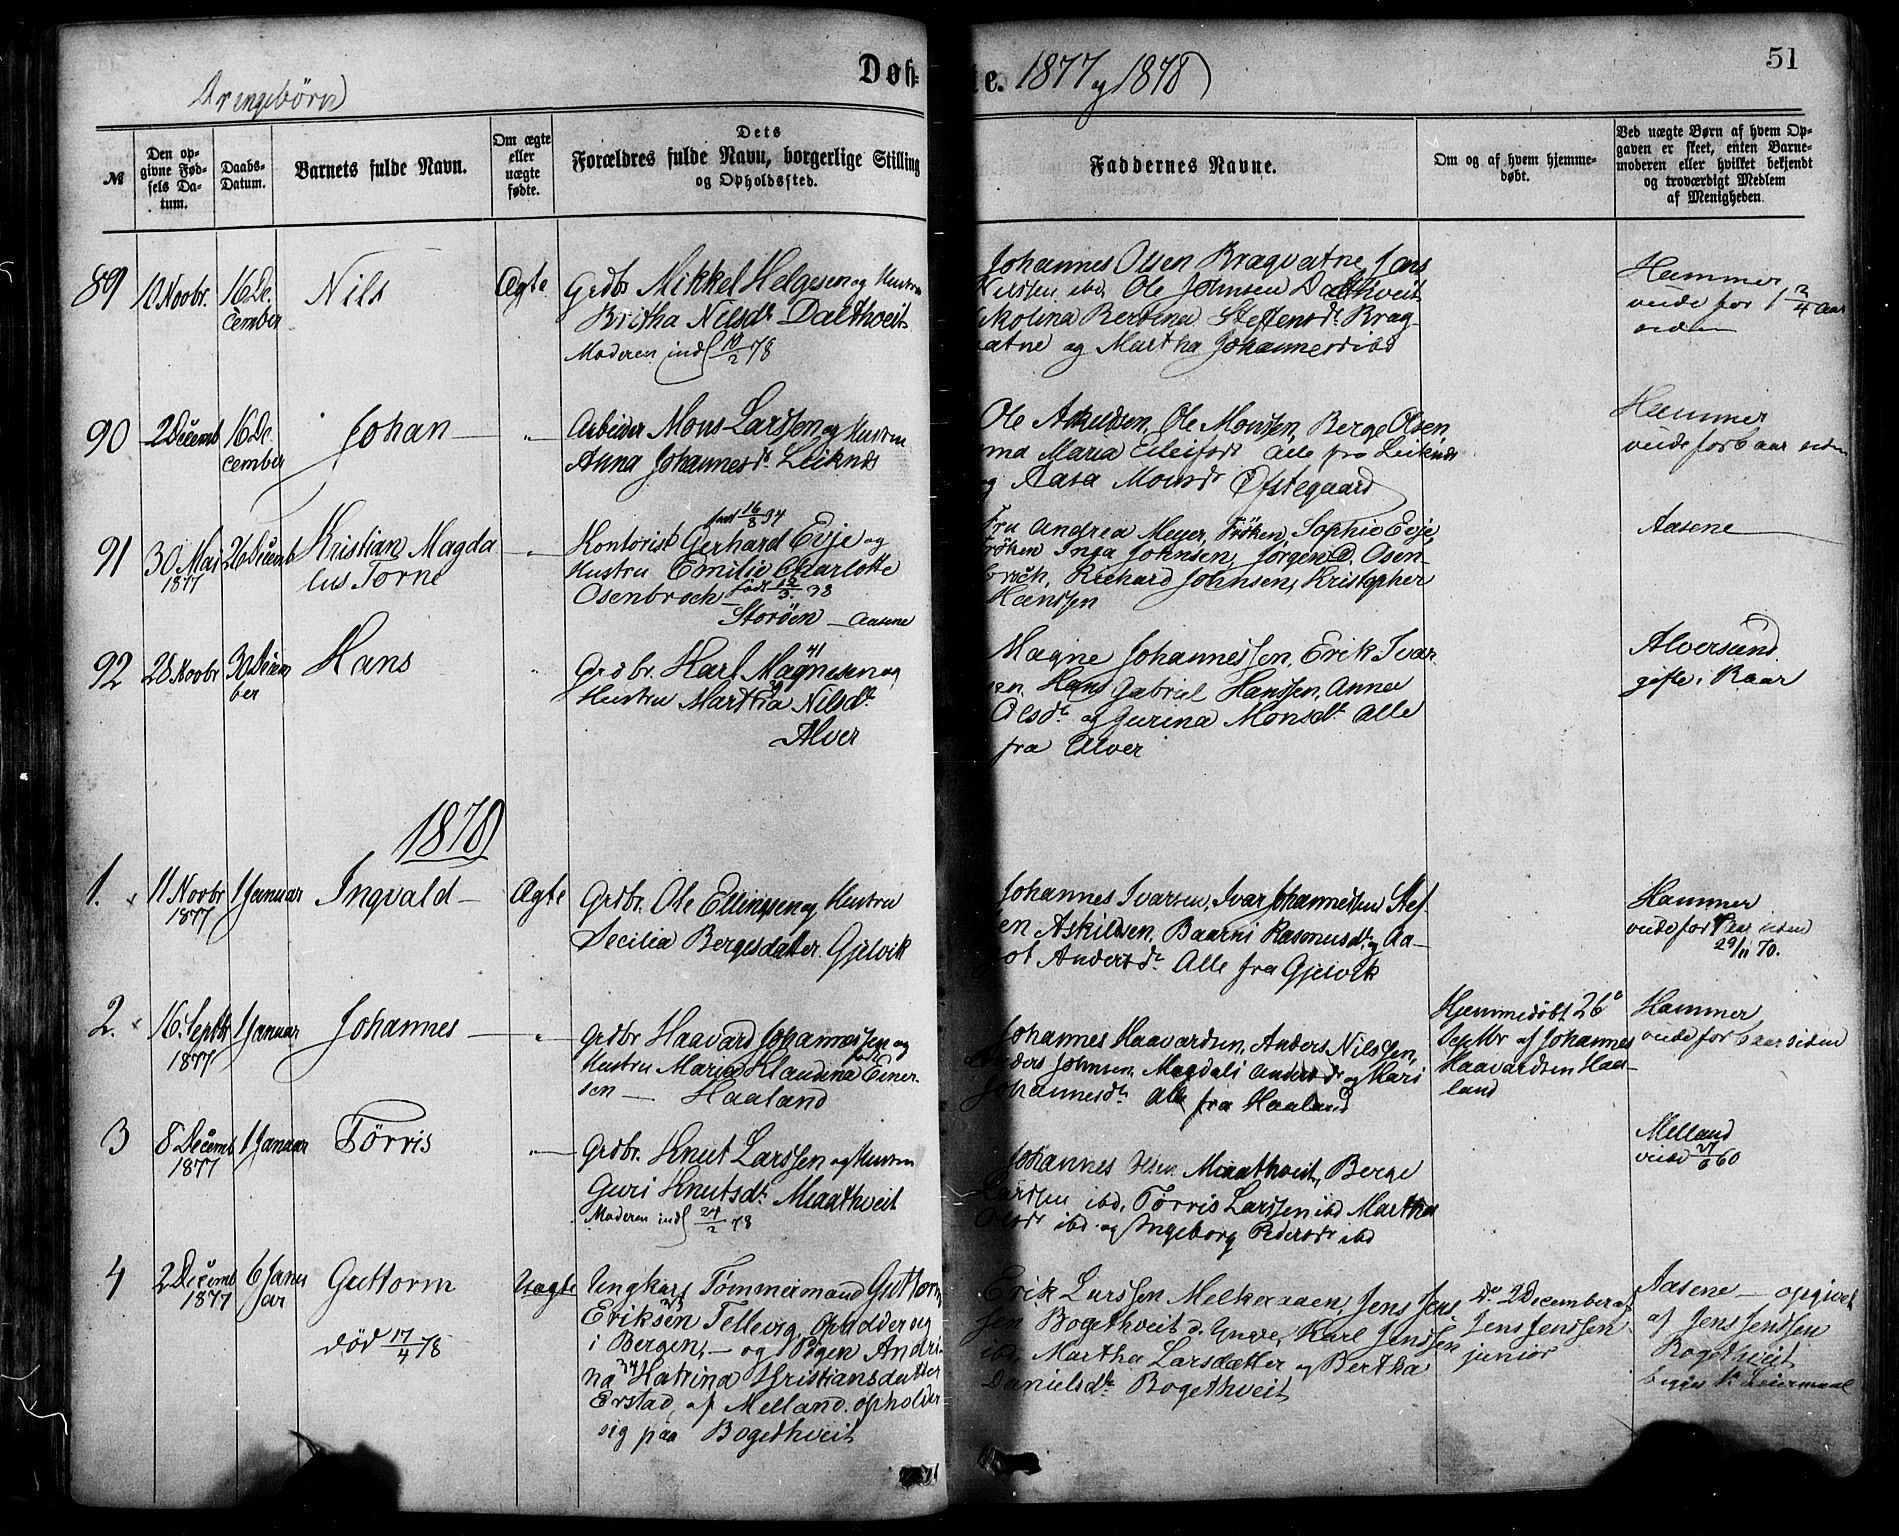 Drengebørn
Døb=
te. 1877 og 1878
51
№
Den op-
givne Fød-
sels Da-
tum.
Daabs-
Datum.
Barnets fulde Navn.
Om ægte
eller
uægte
fødte.
Dets
Forældres fulde Navn, borgerlige Stilling
og Opholdssted.
Faddernes Navne.
Om og af hvem hjemme-
døbt.
Ved uægte Børn af hvem Op-
gaven er skeet, enten Barne-
moderen eller hvilket bekjendt
og troværdigt Medlem
af Menigheden.
89
10 Novbr.
16 De.
cember
Nils
Ægte
Grdbr Mikkel Helgesen og Hustru
Britha Nilsdr Dalthveit
Moderen indl 10/2 78
Johannes Olsen Bragvatne, Lars
ibd, Ole Johnsen Dalthveit,
Nikolina Bertina Steffensdr Brag-
vatne og Martha Johannesd ibd
Hammer
viede for 1 3/4 Aar
siden
90
2 Decemb
16 De.
cember
Johan
"
Arbeider Mons Larssen og Hustru
Anna Johannesdr Leiknes
Ole Askildsen, Ole Monssen, Berge Olsen
Maria Eileifsdr Alle fra Leiknes
og Aasa Monsdr Øfstegaard
Hammer
viede for 6 aar siden
91
30 Mai
1877
26 Decemb
Kristian Magda
lus Torne
"
født 16/8 34
Kontorist Gerhard Evje og
Hustru Emilie Charlotte
Osenbroch født 12/3 38
Storøen — Aasene
Fru Andrea Meyer, Frøken Sophie Evje
Frøken Inga Johnsen, Jørgen D. Osen-
broch, Richard Johnsen, Kristopher
Hanssen
Aasene
92
28 Novbr
30 Decem
ber
Hans
"
Grdbr. Karl Magnesen 41 og
Hustru Martha 39 Nilsdr
Alver
Magne Johannessen, Erik Ivar
sen Hans Gabriel Hanssen, Anna
Olsdr og Gurina Monsdr Alle
fra Alver
Alversund.
gifte i Raar
1878
1.
11 Novbr
1877
1 Januar
Ingvald
Ægte
Grdbr. Ole Ellingsen og Hustru
Secilia Bergesdatter Gjelvik
Johannes Ivarsen, Ivar Johannessen Stef-
fen Askildsen, Baarni Rasmusdr og Aa-
got Andersdr. Alle fra Gjelvik
Hammer
viede for Aar siden
29/11 70.
2.
16 Septbr
1877
1 Januar
Johannes
"
Grdbr Haavard Johannessen og
Hustru Maria Klaudina født Einer-
sen — Haaland
Johannes Haavardsen, Anders Nilssen,
Anders Johnsen, Magdali Andersdr og Mari
Johannesdr Alle fra Haaland
Hjemmedøbt 26de
Septbr af Johannes
Haavardsen Haa-
land
Hammer
viede for aar siden
3
8 Decemb
1877
1 Januar
Tørris
"
Grdbr. Knut Larssen og Hustru
Guri Knutsdr. Miaathveit
Moderen indl 24/2 78
Johannes Olsen Miaathveit, Berge
Larssen ibd, Tørris Larssen ibd Martha
Olsdr ibd og Ingeborg Pedersdr ibd
Melland
viede 27/6 60
4
2 Decemb
1877
6 Janu
ar
Guttorm
død 17/4 78
Uægte
Ungkarl Tømmermand Guttorm
Eriksen 23 Tellevg, opholder sig
i Bergen, — og Pigen Andri-
na 34 Katrina Kristiansdatter
Erstad, af Melland. opholder
sig paa Bogethveit
Erik Larssen Melkeraaen, Jens Jens
sen Bogethveit d. Yngre, Karl Jenssen
ibd, Martha Larsdatter og Bertha
Danielsdr Bogethveit
do 2 December af
Jens Jenssen
junior
Aasene — opgivet
af Jens Jenssen
Bogethveit
begges 1ste Leiermaal